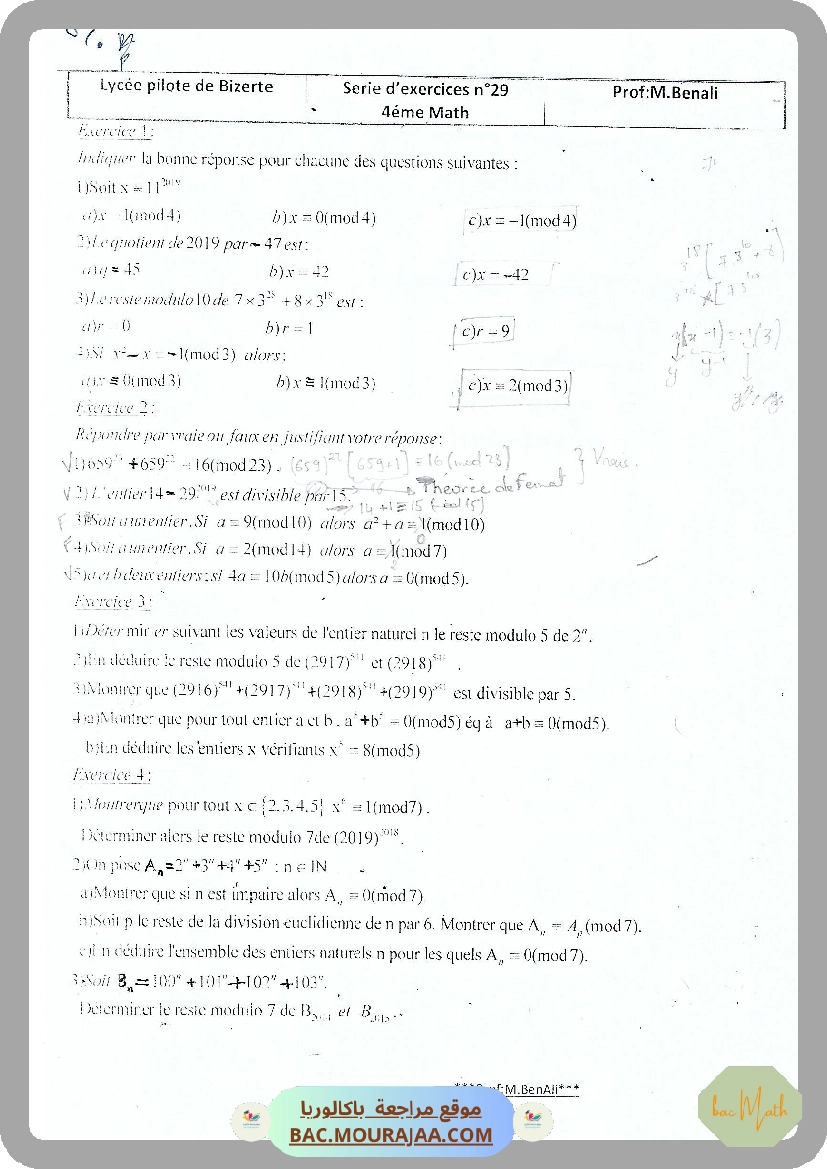 Lycée pilote de Bizerte
Serie d'exercices n°29
4éme Math
Prof:M.Benali
Exercice 1 :
Indiquer la bonne réponse pour chacune des questions suivantes :
1)Soit x = 11^2019
a)x = 1(mod 4) b)x ≡ 0(mod 4) c)x ≡ −1(mod 4)
2)Le quotient de 2019 par − 47 est :
a)q = 45 b)x = 42 c)x = −42
3)Le reste modulo 10 de 7×3^28 + 8×3^18 est :
a)r = 0 b)r = 1 c)r = 9
4)Si x² − x ≡ −1(mod 3) alors :
a)x ≡ 0(mod 3) b)x ≡ 1(mod 3) c)x ≡ 2(mod 3)
Exercice 2 :
Répondre par vraie ou faux en justifiant votre réponse :
1) + 659^22 = 16(mod 23) . (659)^22 [659+1] ≡ 16 (mod 23) } Vrais.
2) L'entier 14 − 29^2019 est divisible par 15.
14 +1 ≡ 15
3)Soit a un entier. Si a = 9(mod 10) alors a² + a ≡ 1(mod 10)
4)Soit a un entier. Si a = 2(mod 14) alors a = 1(mod 7)
5)a et b deux entiers : si 4a = 10b(mod 5) alors a = 0(mod 5).
Exercice 3 :
1)Déterminer suivant les valeurs de l'entier naturel n le reste modulo 5 de 2^n.
2)En déduire le reste modulo 5 de (2917)^541 et (2918)^541 .
3)Montrer que (2916)^541 +(2917)^541 +(2918)^541 +(2919)^541 est divisible par 5.
4)a)Montrer que pour tout entier a et b , = 0(mod5) éq à a+b ≡ 0(mod5).
b)En déduire les entiers x vérifiants = 8(mod5)
Exercice 4 :
1)Montrerque pour tout x ∈ {2,3,4,5} x^6 ≡ 1(mod7) .
Déterminer alors le reste modulo 7de (2019)^2018.
2)On pose A_n = 2^n +3^n +4^n +5^n : n ∈ IN
a)Montrer que si n est impaire alors A_n ≡ 0(mod 7)
b)Soit p le reste de la division euclidienne de n par 6. Montrer que A_n ≡ A_p (mod 7).
c)En déduire l'ensemble des entiers naturels n pour les quels A_n ≡ 0(mod 7).
3)Soit B_n = 100^n +101^n +102^n +103^n.
Déterminer le reste modulo 7 de et
M.BenAli***
موقع مراجعة باكالوريا
BAC.MOURAJAA.COM
bacMath